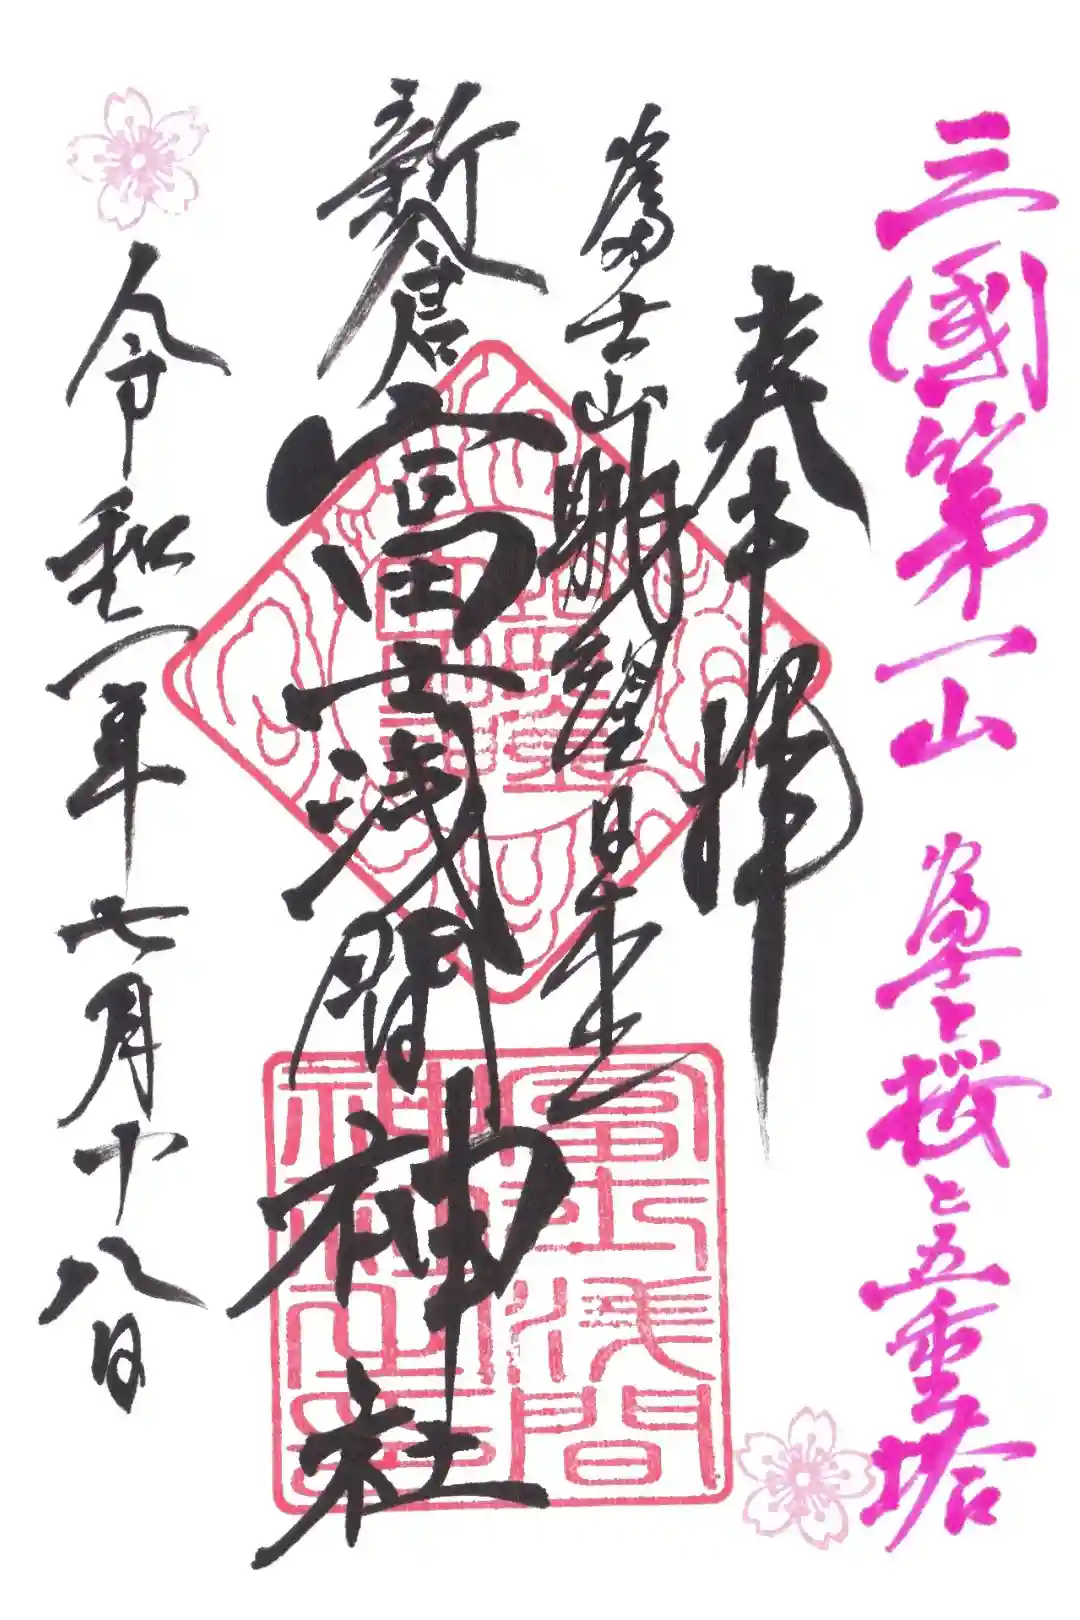 三國第一山 富士と桜と五重塔
奉拝
富士山眺望日本一
新倉富士浅間神社
令和二年七月十八日
富士浅間
神社之璽